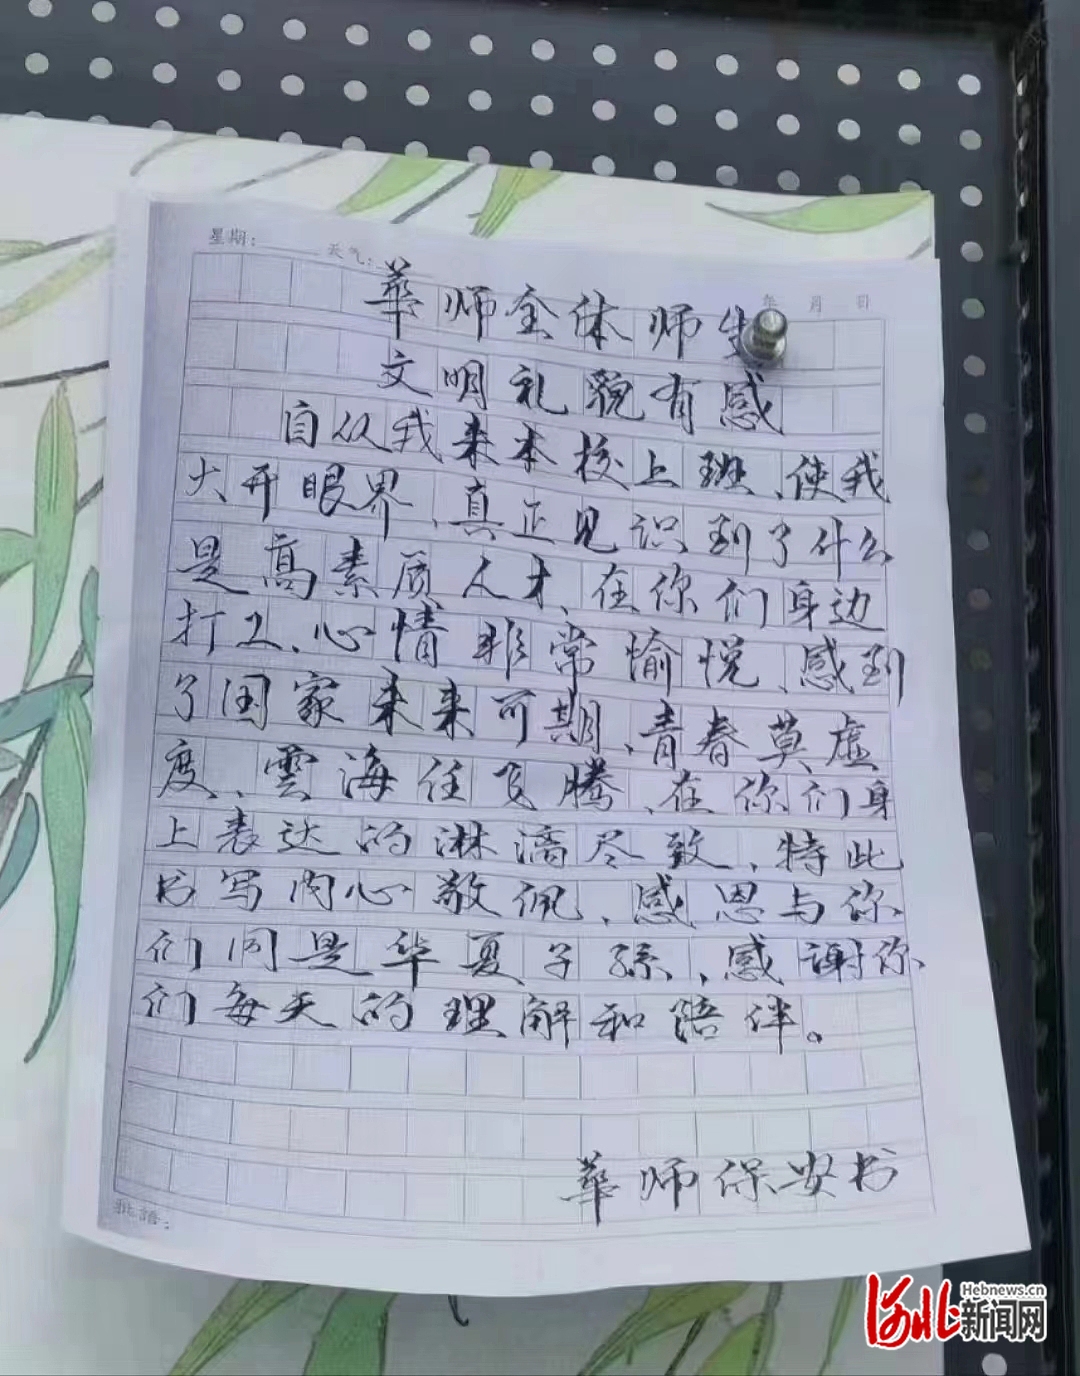 星期： 天气：
年 月 日
華师全体师生
文明礼貌有感
自从我来本校上班、使我
大开眼界、真正见识到了什么
是高素质人才、在你们身边
打工、心情非常愉悦、感到
了国家未来可期、青春莫虚
度、雲海任飞腾、在你们身
上表达的淋漓尽致、特此
书写内心敬佩、感恩与你
们同是华夏子孫、感谢你
们每天的理解和陪伴。
華师保安书
批語：
河北新闻网
Hebnews.cn